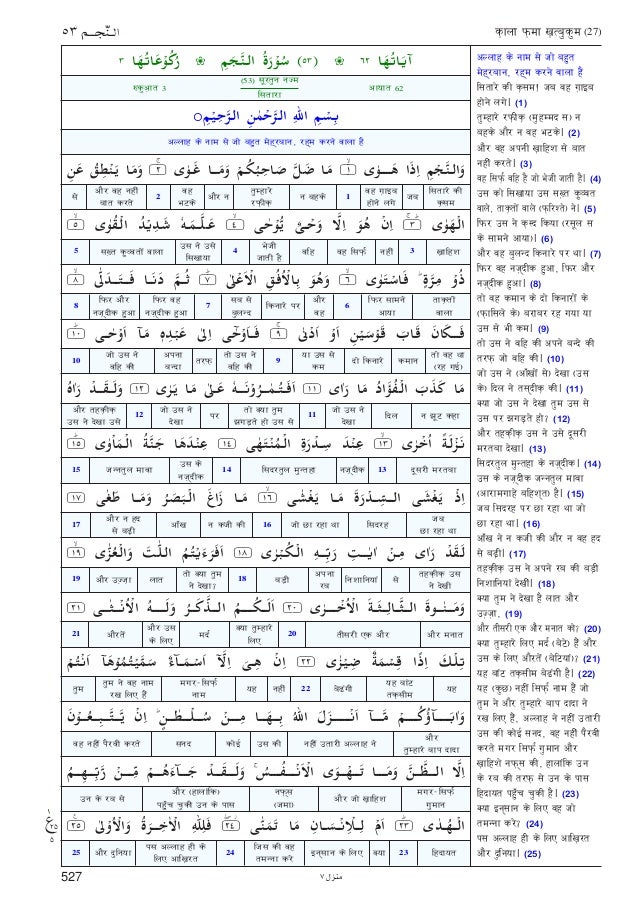 ٥٣ النَّجْم
क़ाला फ़मा ख़त्बुकुम (27)
٣ رُكُوْعَاتُهَا ❀ (٥٣) سُوْرَةُ النَّجْمِ ❀ ٦٢ اٰيَاتُهَا
रुकुआत 3
(53) सूरतुन नज्म
सितारा
आयात 62
بِسْمِ اللّٰهِ الرَّحْمٰنِ الرَّحِيْمِ
अल्लाह के नाम से जो बहुत मेह्रबान, रह्म करने वाला है
وَالنَّجْمِ اِذَا هَوٰى ۙ ١ مَا ضَلَّ صَاحِبُكُمْ وَمَا غَوٰى ۚ ٢ وَمَا يَنْطِقُ عَنِ
सितारे की क़सम
जब
वह ग़ाइब होने लगे
1
न बहके
तुम्हारे रफ़ीक़
और न
वह भटके
2
और वह नहीं बात करते
से
الْهَوٰى ۗ ٣ اِنْ هُوَ اِلَّا وَحْيٌ يُّوْحٰى ۙ ٤ عَلَّمَهٗ شَدِيْدُ الْقُوٰى ۙ ٥
ख़ाहिश
3
नहीं
वह
सिर्फ़
वहि
भेजी जाती है
4
उस ने उसे सिखाया
सख़्त कुव्वतों वाला
5
ذُوْ مِرَّةٍ ۗ فَاسْتَوٰى ۙ ٦ وَهُوَ بِالْاُفُقِ الْاَعْلٰى ۗ ٧ ثُمَّ دَنَا فَتَدَلّٰى ۙ ٨
ताक़तों वाला
फिर सामने आया
6
और वह
किनारे पर
सब से बुलन्द
7
फिर वह नज़्दीक हुआ
फिर और नज़्दीक हुआ
8
فَكَانَ قَابَ قَوْسَيْنِ اَوْ اَدْنٰى ۚ ٩ فَاَوْحٰٓى اِلٰى عَبْدِهٖ مَآ اَوْحٰى ۗ ١٠
तो वह था (रह गई)
कमान
दो किनारे
या उस से कम
9
तो उस ने वहि की
तरफ़
अपना बन्दा
जो उस ने वहि की
10
مَا كَذَبَ الْفُؤَادُ مَا رَاٰى ١١ اَفَتُمٰرُوْنَهٗ عَلٰى مَا يَرٰى ١٢ وَلَقَدْ رَاٰهُ
न झूट कहा
दिल
जो उस ने देखा
11
तो क्या तुम झगड़ते हो उस से
पर
जो उस ने देखा
12
और तहक़ीक़ उस ने देखा उसे
نَزْلَةً اُخْرٰى ۙ ١٣ عِنْدَ سِدْرَةِ الْمُنْتَهٰى ١٤ عِنْدَهَا جَنَّةُ الْمَاْوٰى ۗ ١٥
दूसरी मरतबा
13
नज़्दीक
सिदरतुल मुन्तहा
14
उस के नज़्दीक
जन्नतुल मावा
15
اِذْ يَغْشَى السِّدْرَةَ مَا يَغْشٰى ۙ ١٦ مَا زَاغَ الْبَصَرُ وَمَا طَغٰى ١٧
जब छा रहा था
सिदरह
जो छा रहा था
16
न कजी की
आँख
और न हद से बढ़ी
17
لَقَدْ رَاٰى مِنْ اٰيٰتِ رَبِّهِ الْكُبْرٰى ١٨ اَفَرَءَيْتُمُ اللّٰتَ وَالْعُزّٰى ۙ ١٩
तहक़ीक़ उस ने देखी
से
निशानियां
अपना रब
बड़ी
18
तो क्या तुम ने देखा?
लात
और उज़्ज़ा
19
وَمَنٰوةَ الثَّالِثَةَ الْاُخْرٰى ٢٠ اَلَكُمُ الذَّكَرُ وَلَهُ الْاُنْثٰى ٢١
और मनात
तीसरी एक और
20
क्या तुम्हारे लिए
मर्द
और उस के लिए
औरतें
21
تِلْكَ اِذًا قِسْمَةٌ ضِيْزٰى ٢٢ اِنْ هِيَ اِلَّآ اَسْمَآءٌ سَمَّيْتُمُوْهَآ اَنْتُمْ
यह
यह बांट तक़सीम
बेढंगी
22
नहीं
यह
मगर-सिर्फ़ नाम
तुम ने वह नाम रख लिए हैं
तुम
وَاٰبَآؤُكُمْ مَّآ اَنْزَلَ اللّٰهُ بِهَا مِنْ سُلْطٰنٍ ۗ اِنْ يَّتَّبِعُوْنَ
और तुम्हारे बाप दादा
नहीं उतारी अल्लाह ने
उस की
कोई
सनद
वह नहीं पैरवी करते
اِلَّا الظَّنَّ وَمَا تَهْوَى الْاَنْفُسُ ۚ وَلَقَدْ جَآءَهُمْ مِّنْ رَّبِّهِمُ
मगर-सिर्फ़ गुमान
और जो ख़ाहिश
नफ़्स (जमा)
और (हालांकि) पहुँच चुकी उन के पास
उन के रब से
الْهُدٰى ۗ ٢٣ اَمْ لِلْاِنْسَانِ مَا تَمَنّٰى ۖ ٢٤ فَلِلّٰهِ الْاٰخِرَةُ وَالْاُوْلٰى ۚ ٢٥
हिदायत
23
क्या
इन्सान के लिए
जिस की वह तमन्ना करे
24
पस अल्लाह ही के लिए आख़िरत
और दुनिया
25
अल्लाह के नाम से जो बहुत
मेह्रबान, रह्म करने वाला है
सितारे की क़सम! जब वह ग़ाइब
होने लगे। (1)
तुम्हारे रफ़ीक़ (मुहम्मद स) न
बहके और न वह भटके। (2)
और वह अपनी ख़ाहिश से बात
नहीं करते। (3)
वह सिर्फ़ वहि है जो भेजी जाती है। (4)
उस को सिखाया उस सख़्त कुव्वत
वाले, ताक़तों वाले (फ़रिश्ते) ने। (5)
फिर उस ने क़स्द किया (रसूल स
के सामने आया)। (6)
और वह बुलन्द किनारे पर था। (7)
फिर वह नज़्दीक हुआ, फिर और
नज़्दीक हुआ। (8)
तो वह कमान के दो किनारों के
(फ़ासिले के) बराबर रह गया या
उस से भी कम। (9)
तो उस ने वहि की अपने बन्दे की
तरफ़ जो वहि की। (10)
जो उस ने (आँखों से) देखा (उस
के) दिल ने तस्दीक़ की। (11)
क्या जो उस ने देखा तुम उस से
उस पर झगड़ते हो? (12)
और तहक़ीक़ उस ने उसे दूसरी
मरतबा देखा। (13)
सिदरतुल मुन्तहा के नज़्दीक। (14)
उस के नज़्दीक जन्नतुल मावा
(आरामगाहे बहिश्त) है। (15)
जब सिदरह पर छा रहा था जो
छा रहा था। (16)
आँख ने न कजी की और न वह हद
से बढ़ी। (17)
तहक़ीक़ उस ने अपने रब की बड़ी
निशानियां देखीं। (18)
क्या तुम ने देखा है लात और
उज़्ज़ा, (19)
और तीसरी एक और मनात को? (20)
क्या तुम्हारे लिए मर्द (बेटे) हैं और
उस के लिए औरतें (बेटियां)? (21)
यह बांट तक़सीम बेढंगी है। (22)
यह (कुछ) नहीं सिर्फ़ नाम हैं जो
तुम ने और तुम्हारे बाप दादा ने
रख लिए हैं, अल्लाह ने नहीं उतारी
उस की कोई सनद, वह नहीं पैरवी
करते मगर सिर्फ़ गुमान और
ख़ाहिशे नफ़्स की, हालांकि उन
के रब की तरफ़ से उन के पास
हिदायत पहुँच चुकी है। (23)
क्या इन्सान के लिए वह जो
तमन्ना करे? (24)
पस अल्लाह ही के लिए आख़िरत
और दुनिया। (25)
١
ع
٢٥
٥
527
منزل ٧